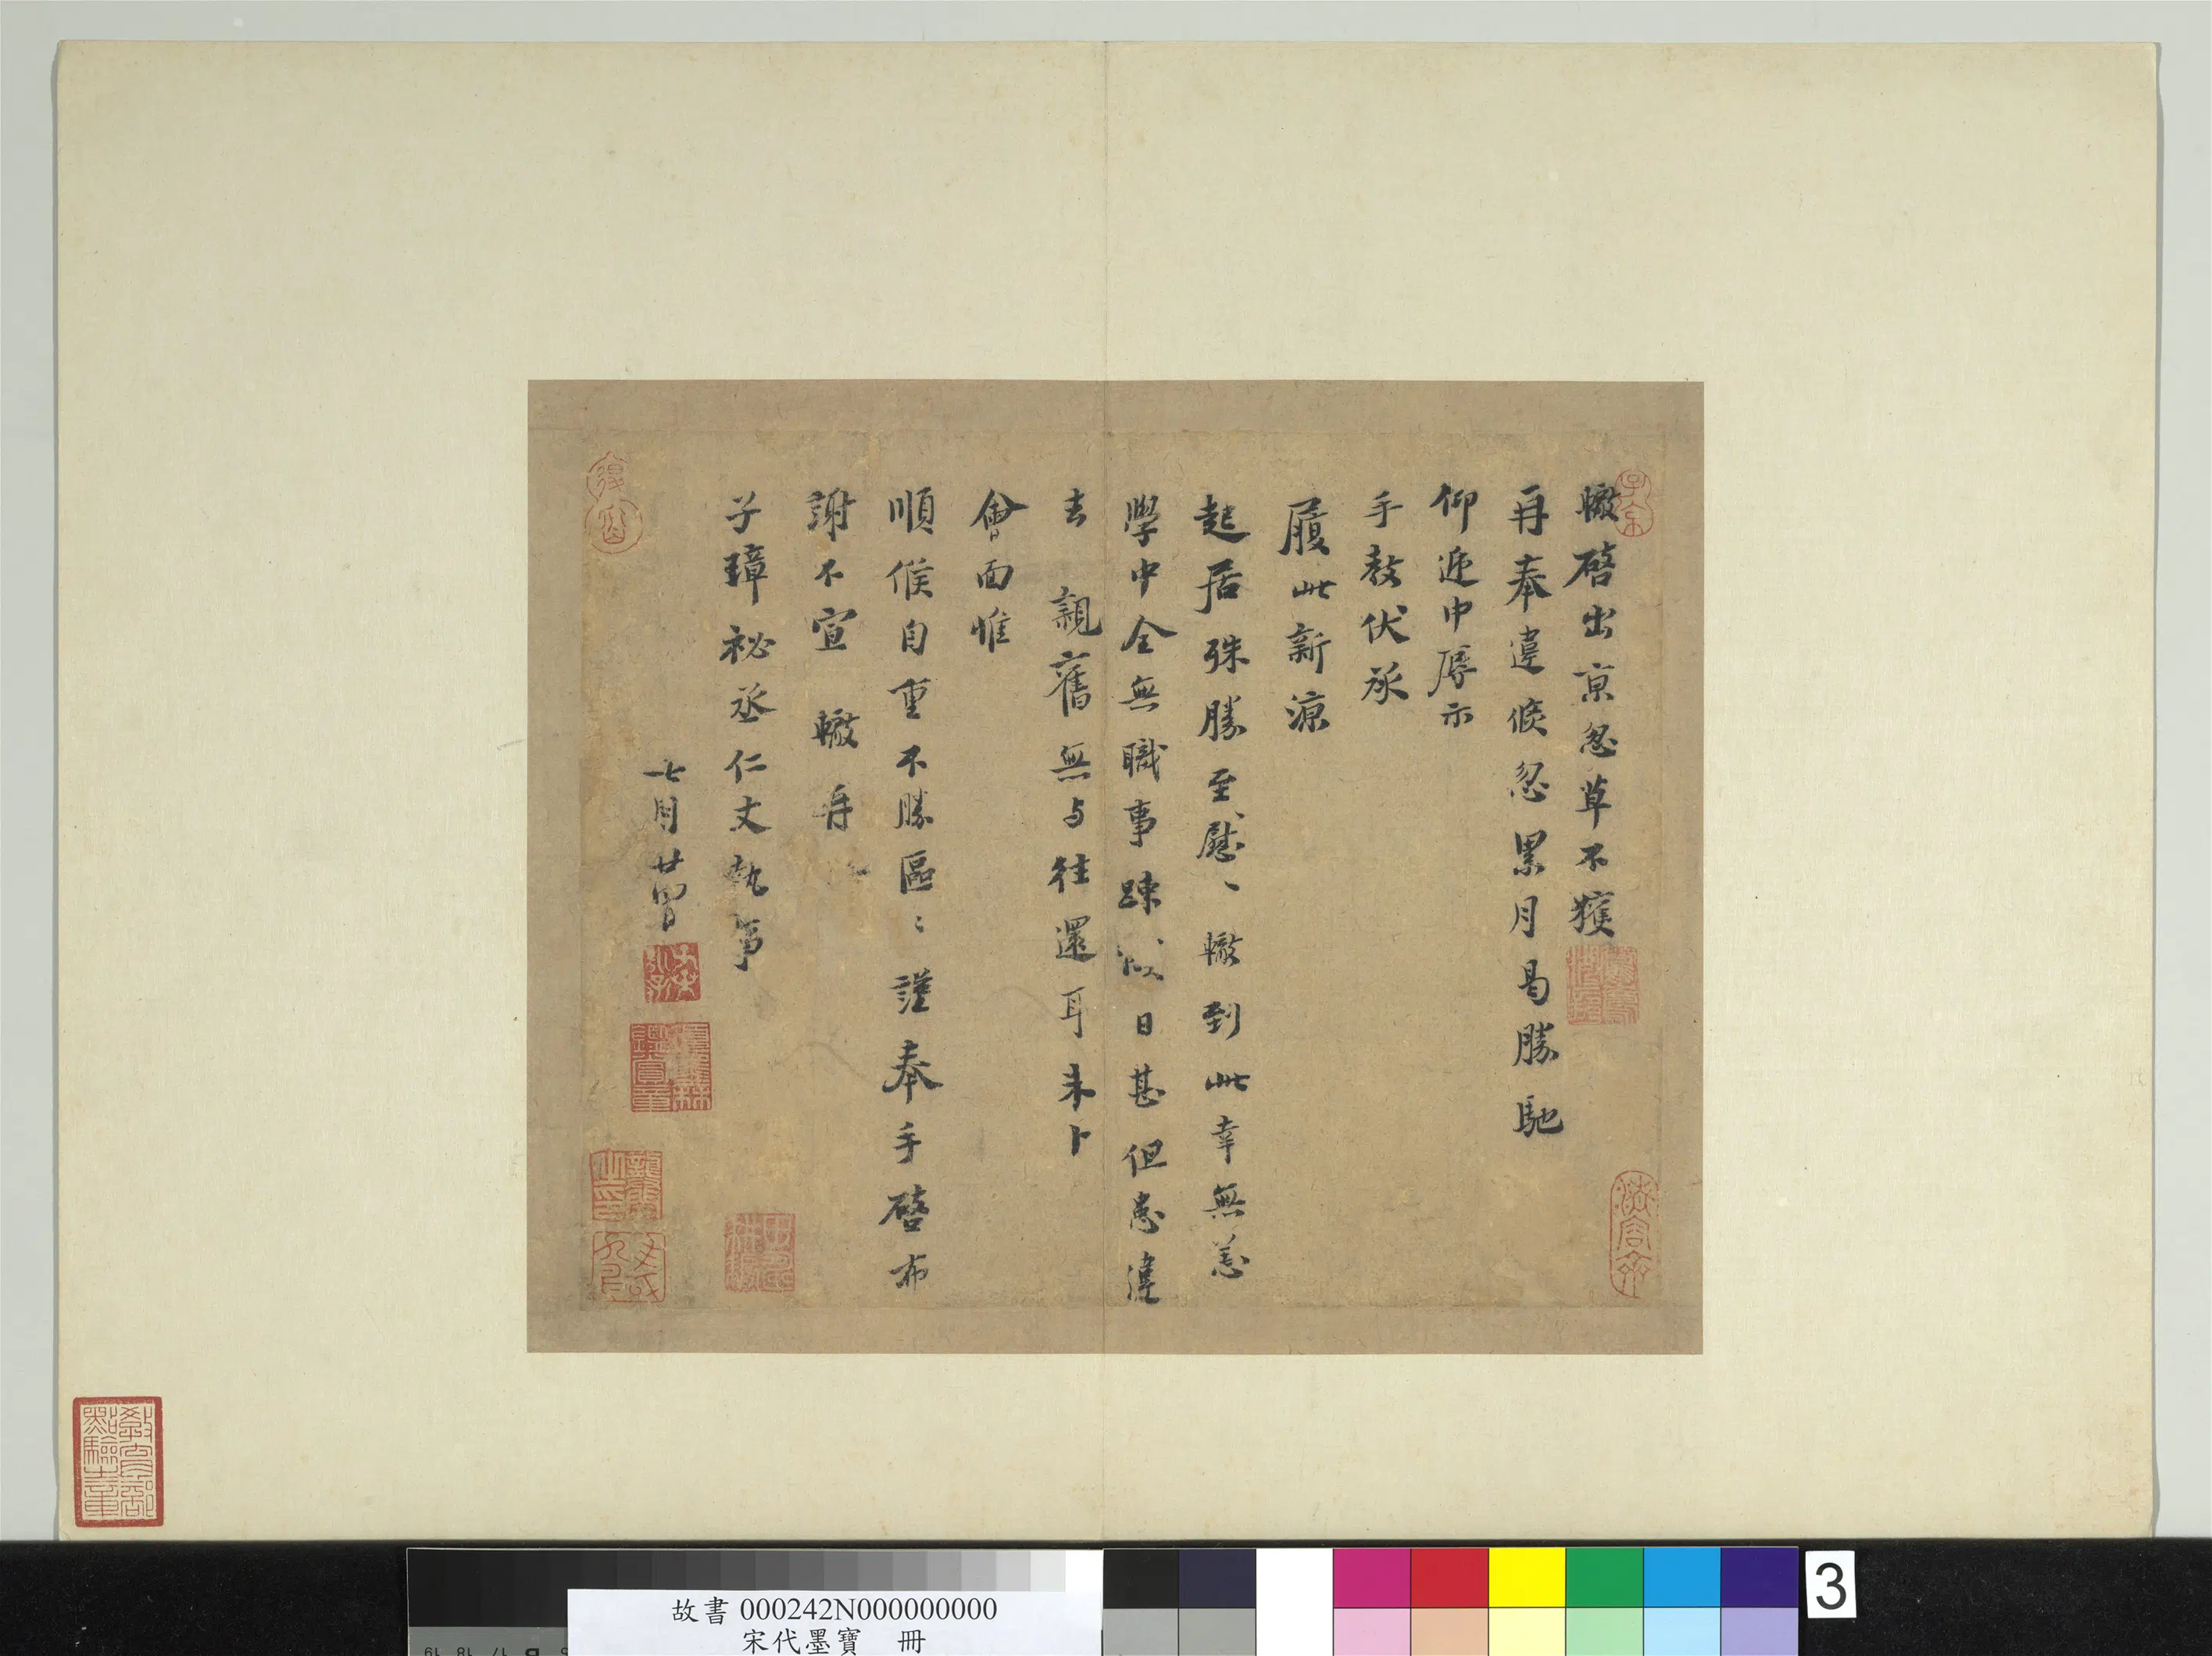 轍啓出京忽草不獲
再奉違倏忽累月曷勝馳
仰遞中辱示
手教伏承
履此新涼
起居殊勝至慰、轍到此幸無恙
學中全無職事踈以日甚但患違
去 親舊無与往還耳未卜
會面惟
順候自重不勝區〻謹奉手啓布
謝不宣 轍再
子璋祕丞仁丈執事
七月廿四日
教育部
點驗之章
3
故書 000242N000000000
宋代墨寶 冊